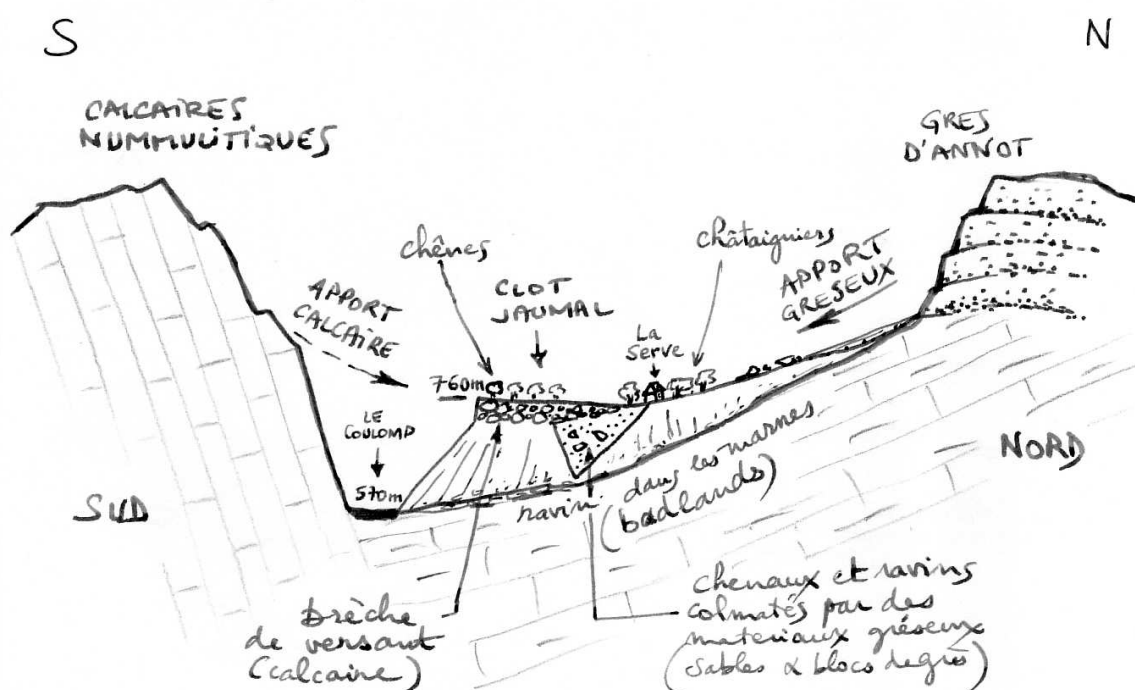 S
N
CALCAIRES
NUMMULITIQUES
GRES
D'ANNOT
chênes
châtaigniers
CLOT
JAUMAL
APPORT
CALCAIRE
APPORT
GRESEUX
La
Serve
760m
LE
COULOMP
570m
SUD
NORD
ravin dans les marnes
(badlands)
brèche
de versant
(calcaire)
chenaux et ravins
colmatés par des
materiaux gréseux
(sables & blocs de grès)